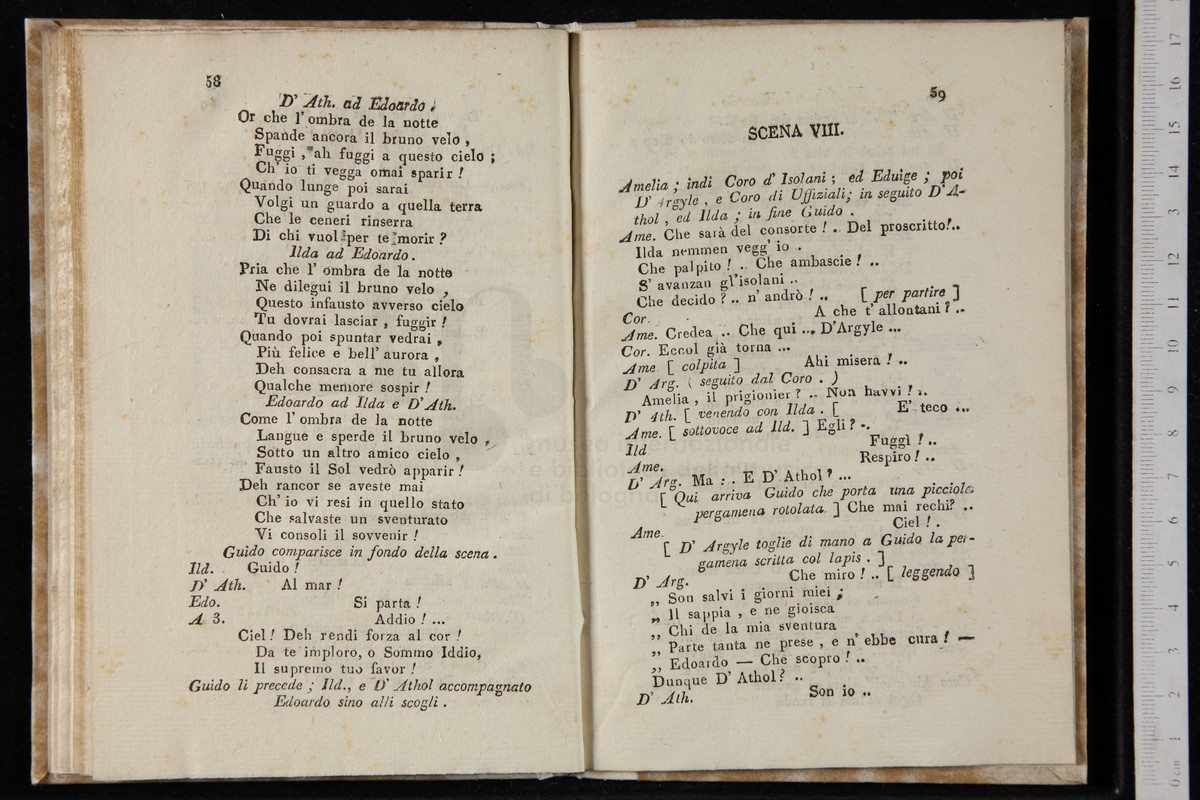 58
D' Ath. ad Edoardo.
Or che l' ombra de la notte
Spande ancora il bruno velo ,
Fuggi , ah fuggi a questo cielo ;
Ch' io ti vegga omai sparir !
Quando lunge poi sarai
Volgi un guardo a quella terra
Che le ceneri rinserra
Di chi vuol per te morir ?
Ilda ad Edoardo .
Pria che l' ombra de la notte
Ne dilegui il bruno velo ,
Questo infausto avverso cielo
Tu dovrai lasciar , fuggir !
Quando poi spuntar vedrai ,
Più felice e bell' aurora ,
Deh consacra a me tu allora
Qualche memore sospir !
Edoardo ad Ilda e D' Ath.
Come l' ombra de la notte
Langue e sperde il bruno velo ,
Sotto un altro amico cielo ,
Fausto il Sol vedrò apparir !
Deh rancor se aveste mai
Ch' io vi resi in quello stato
Che salvaste un sventurato
Vi consoli il sovvenir !
Guido comparisce in fondo della scena .
Ild. Guido !
D' Ath. Al mar !
Edo. Si parta !
A 3. Addio ! ...
Ciel ! Deh rendi forza al cor !
Da te imploro, o Sommo Iddio,
Il supremo tuo favor !
Guido li precede ; Ild., e D' Athol accompagnato
Edoardo sino alli scogli .
59
SCENA VIII.
Amelia ; indi Coro d' Isolani ; ed Eduige ; poi
D' Argyle , e Coro di Uffiziali; in seguito D' A-
thol , ed Ilda ; in fine Guido .
Ame. Che sarà del consorte ! .. Del proscritto!..
Ilda nemmen vegg' io .
Che palpito ! .. Che ambascie ! ..
S' avanzan gl'isolani ..
Che decido ? .. n' andrò ! .. [ per partire ]
Cor. A che t' allontani ? ..
Ame. Credea .. Che qui ... D'Argyle ...
Cor. Eccol già torna ...
Ame [ colpita ] Ahi misera ! ..
D' Arg. ( seguito dal Coro . )
Amelia , il prigionier ? .. Non havvi ! ..
D' Ath. [ venendo con Ilda . [ E' teco ...
Ame. [ sottovoce ad Ild. ] Egli ? ..
Ild Fuggì ! ..
Ame. Respiro ! ..
D' Arg. Ma : . E D' Athol ? ...
[ Qui arriva Guido che porta una picciola
pergamena rotolata. ] Che mai rechi? ..
Ame. Ciel ! .
[ D' Argyle toglie di mano a Guido la per-
gamena scritta col lapis . ]
D' Arg. Che miro ! .. [ leggendo ]
,, Son salvi i giorni miei ;
,, Il sappia , e ne gioisca
,, Chi de la mia sventura
,, Parte tanta ne prese , e n' ebbe cura ! —
,, Edoardo — Che scopro ! ..
Dunque D' Athol ? ..
D' Ath. Son io ..